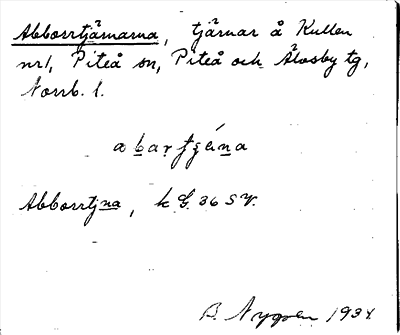 Abborrtjärnarna, tjärnar å Kullen
nr 1, Piteå sn, Piteå och Älvsby tg,
Norrb. l.
Abborrtjna, k G. 36 SV.
B. Nygren 1934